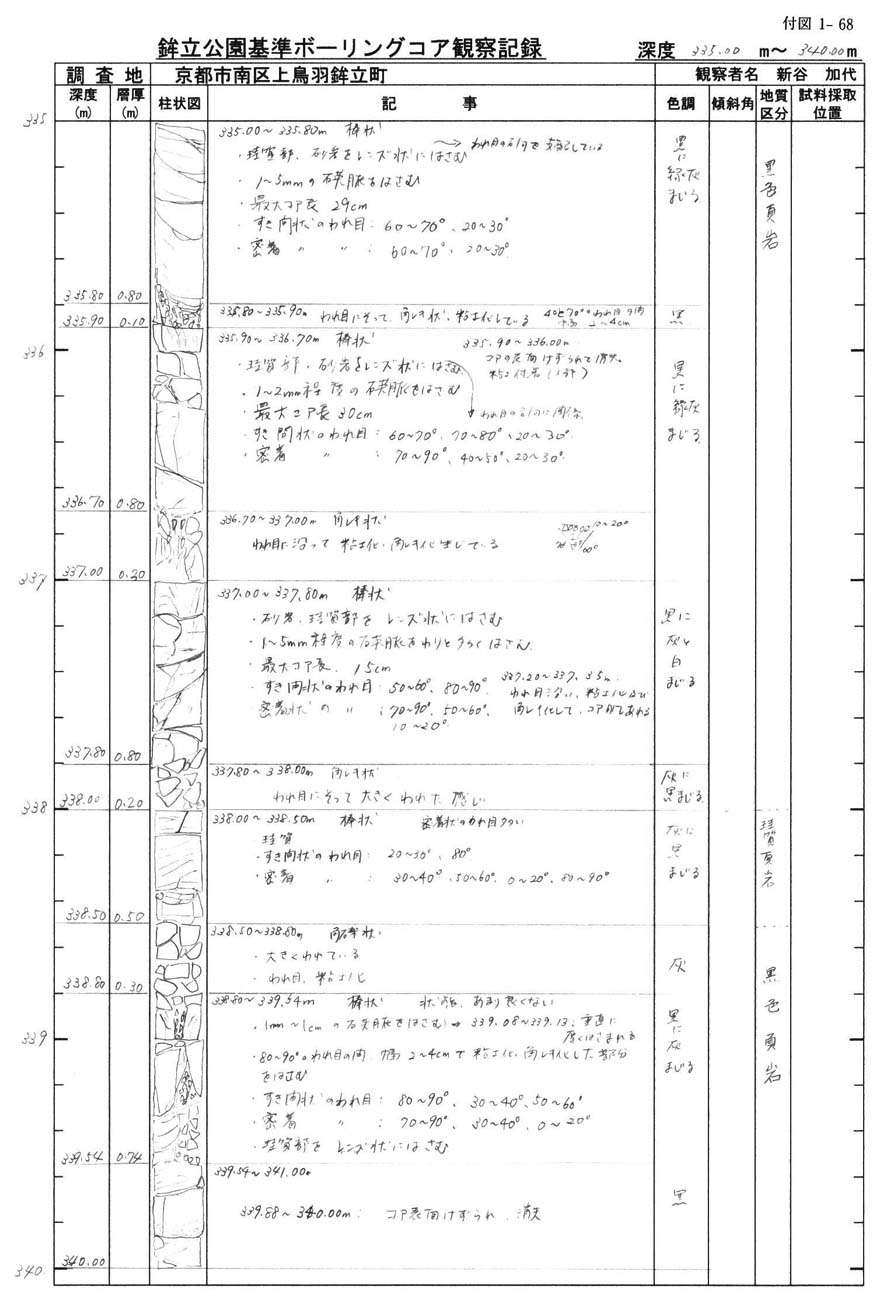 付図 1- 68
鉾立公園基準ボーリングコア観察記録
深度 335.00 m～ 340.00 m
調査地 京都市南区上鳥羽鉾立町 観察者名 新谷 加代
深度(m) 層厚(m) 柱状図 記事 色調 傾斜角 地質区分 試料採取位置
335
335.00～335.80m 棒状
・珪質部、砂岩をレンズ状にはさむ
・1～5mmの石英脈もはさむ
・最大コア長 29cm
・すき間状のわれ目: 60～70°、20～30°
・密着 〃 〃 : 60～70°、20～30°
黒に緑灰まじる
黒色頁岩
335.80 0.80
335.80～335.90m われ目にそって、角レキ状、粘土化している
黒
335.90 0.10
336
335.90～336.70m 棒状
335.90～336.00m
コアの表面けずられて消失
・珪質部・砂岩をレンズ状にはさむ
・1～2mm程度の石英脈をはさむ
・最大コア長 30cm
・すき間状のわれ目: 60～70°、70～80°、20～30°
・密着 〃 : 70～90°、40～50°、20～30°
黒に緑灰まじる
336.70 0.80
336.70～337.00m 角レキ状
われ目に沿って粘土化・角レキ化生じている
337.00 0.30
337
337.00～337.80m 棒状
・砂岩、珪質部をレンズ状にはさむ
・1～5mm程度の石英脈をわりと多くはさん
・最大コア長、15cm
・すき間状のわれ目: 50～60°、80～90°
337.20～337.35m
われ目沿い、粘土化及び
密着状の 〃 : 70～90°、50～60°、
角レキ化して、コア
10～20°
黒に灰と白まじる
337.80 0.80
337.80～338.00m 角レキ状
われ目にそって大きくわれた感じ
灰に黒まじる
338.00 0.20
338
338.00～338.50m 棒状 密着状のわれ目多い
珪質
・すき間状のわれ目: 20～30°、80°
・密着 〃 : 30～40°、50～60°、0～20°、80～90°
灰に黒まじる
珪質頁岩
338.50 0.50
338.50～338.80m 角礫状
・大きくわれている
・われ目、粘土化
灰
338.80 0.30
338.80～339.54m 棒状 状態、あまり良くない
・1mm～1cmの石英脈をはさむ⇒339.08～339.13: 垂直に
厚くはさまれる
・80～90°のわれ目の間、幅2～4cmで粘土化、角レキ化した部分
をはさむ
・すき間状のわれ目: 80～90°、30～40°、50～60°
・密着 〃 : 70～90°、30～40°、0～20°
・珪質部をレンズ状にはさむ
黒に灰まじる
黒色頁岩
339
339.54 0.74
339.54～341.00
339.88～340.00m: コア表面けずられ、消失
黒
340.00
340